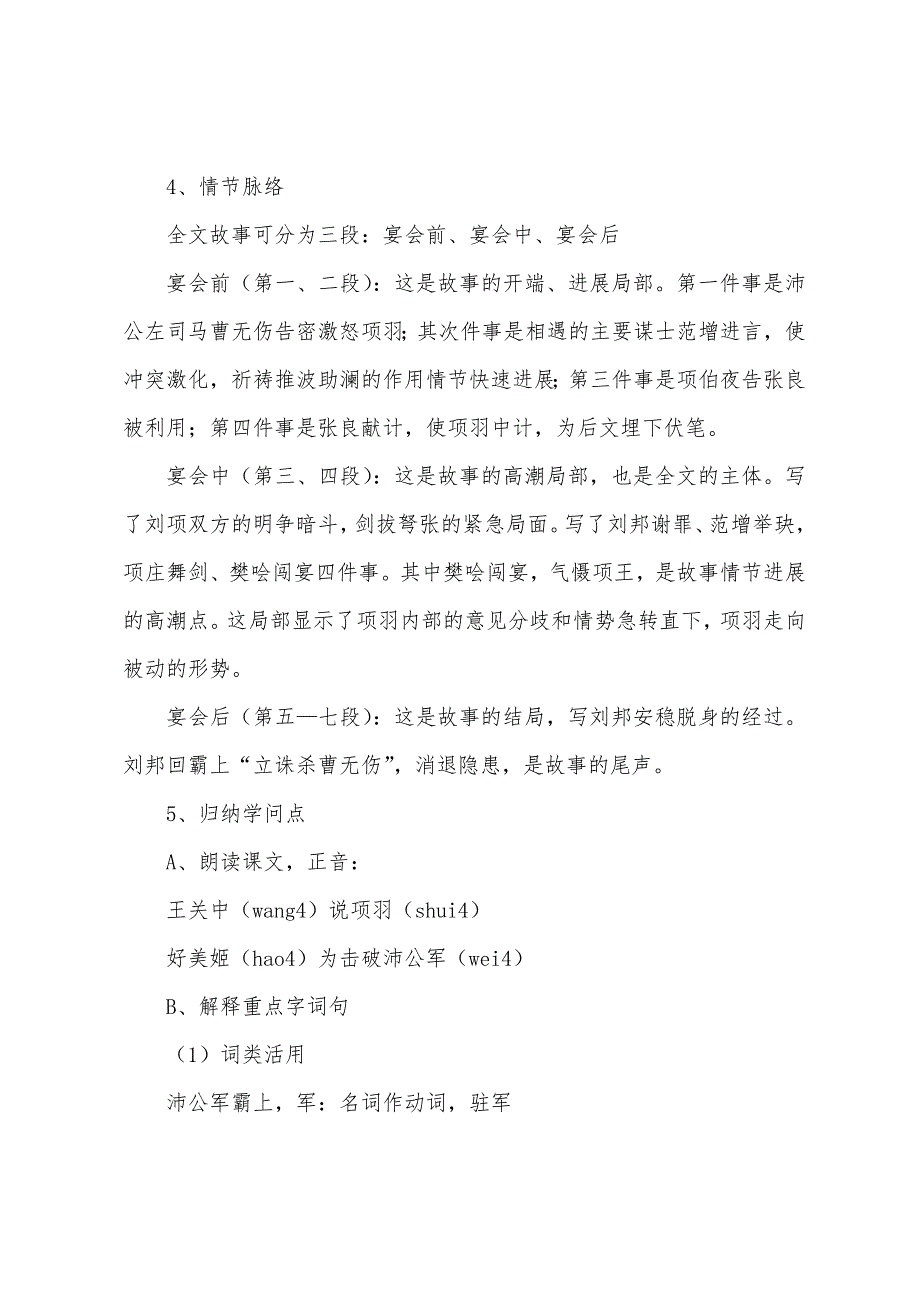 4、情节脉络
全文故事可分为三段：宴会前、宴会中、宴会后
宴会前（第一、二段）：这是故事的开端、进展局部。第一件事是沛
公左司马曹无伤告密激怒项羽；其次件事是相遇的主要谋士范增进言，使
冲突激化，祈祷推波助澜的作用情节快速进展；第三件事是项伯夜告张良
被利用；第四件事是张良献计，使项羽中计，为后文埋下伏笔。
宴会中（第三、四段）：这是故事的高潮局部，也是全文的主体。写
了刘项双方的明争暗斗，剑拔弩张的紧急局面。写了刘邦谢罪、范增举玦，
项庄舞剑、樊哙闯宴四件事。其中樊哙闯宴，气慑项王，是故事情节进展
的高潮点。这局部显示了项羽内部的意见分歧和情势急转直下，项羽走向
被动的形势。
宴会后（第五—七段）：这是故事的结局，写刘邦安稳脱身的经过。
刘邦回霸上“立诛杀曹无伤”，消退隐患，是故事的尾声。
5、归纳学问点
A、朗读课文，正音：
王关中（wang4）说项羽（shui4）
好美姬（hao4）为击破沛公军（wei4）
B、解释重点字词句
（1）词类活用
沛公军霸上，军：名词作动词，驻军